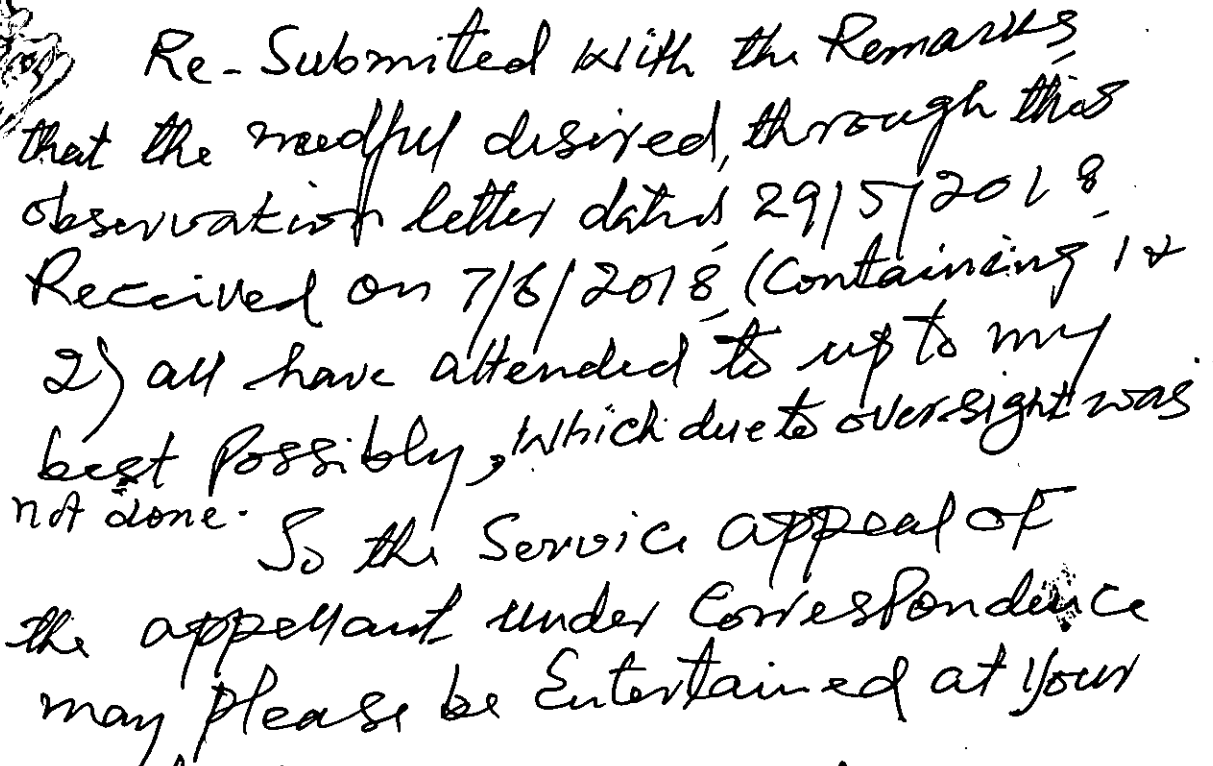 Re-Submitted with the Remarks
that the needful desired, through this
observation letter dated 29/5/2018
Received on 7/6/2018, (Containing 1 &
2) all have attended to up to my
best Possibly, which due to oversight was
not done.
So the Service appeal of
the appellant under Correspondence
may please be Entertained at your